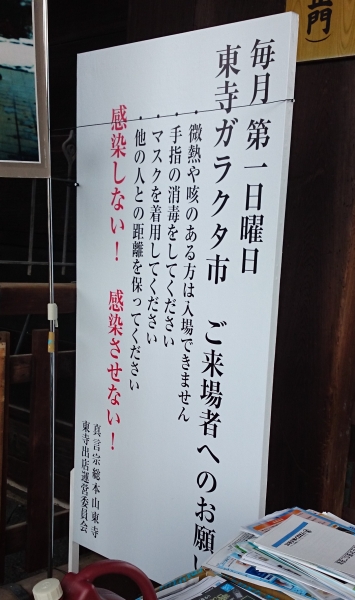 毎月 第一日曜日
東寺ガラクタ市 ご来場者へのお願い
・微熱や咳のある方は入場できません
・手指の消毒をしてください
・マスクを着用してください
・他の人との距離を保ってください
感染しない！ 感染させない！
真言宗総本山東寺
東寺出店運営委員会
門）